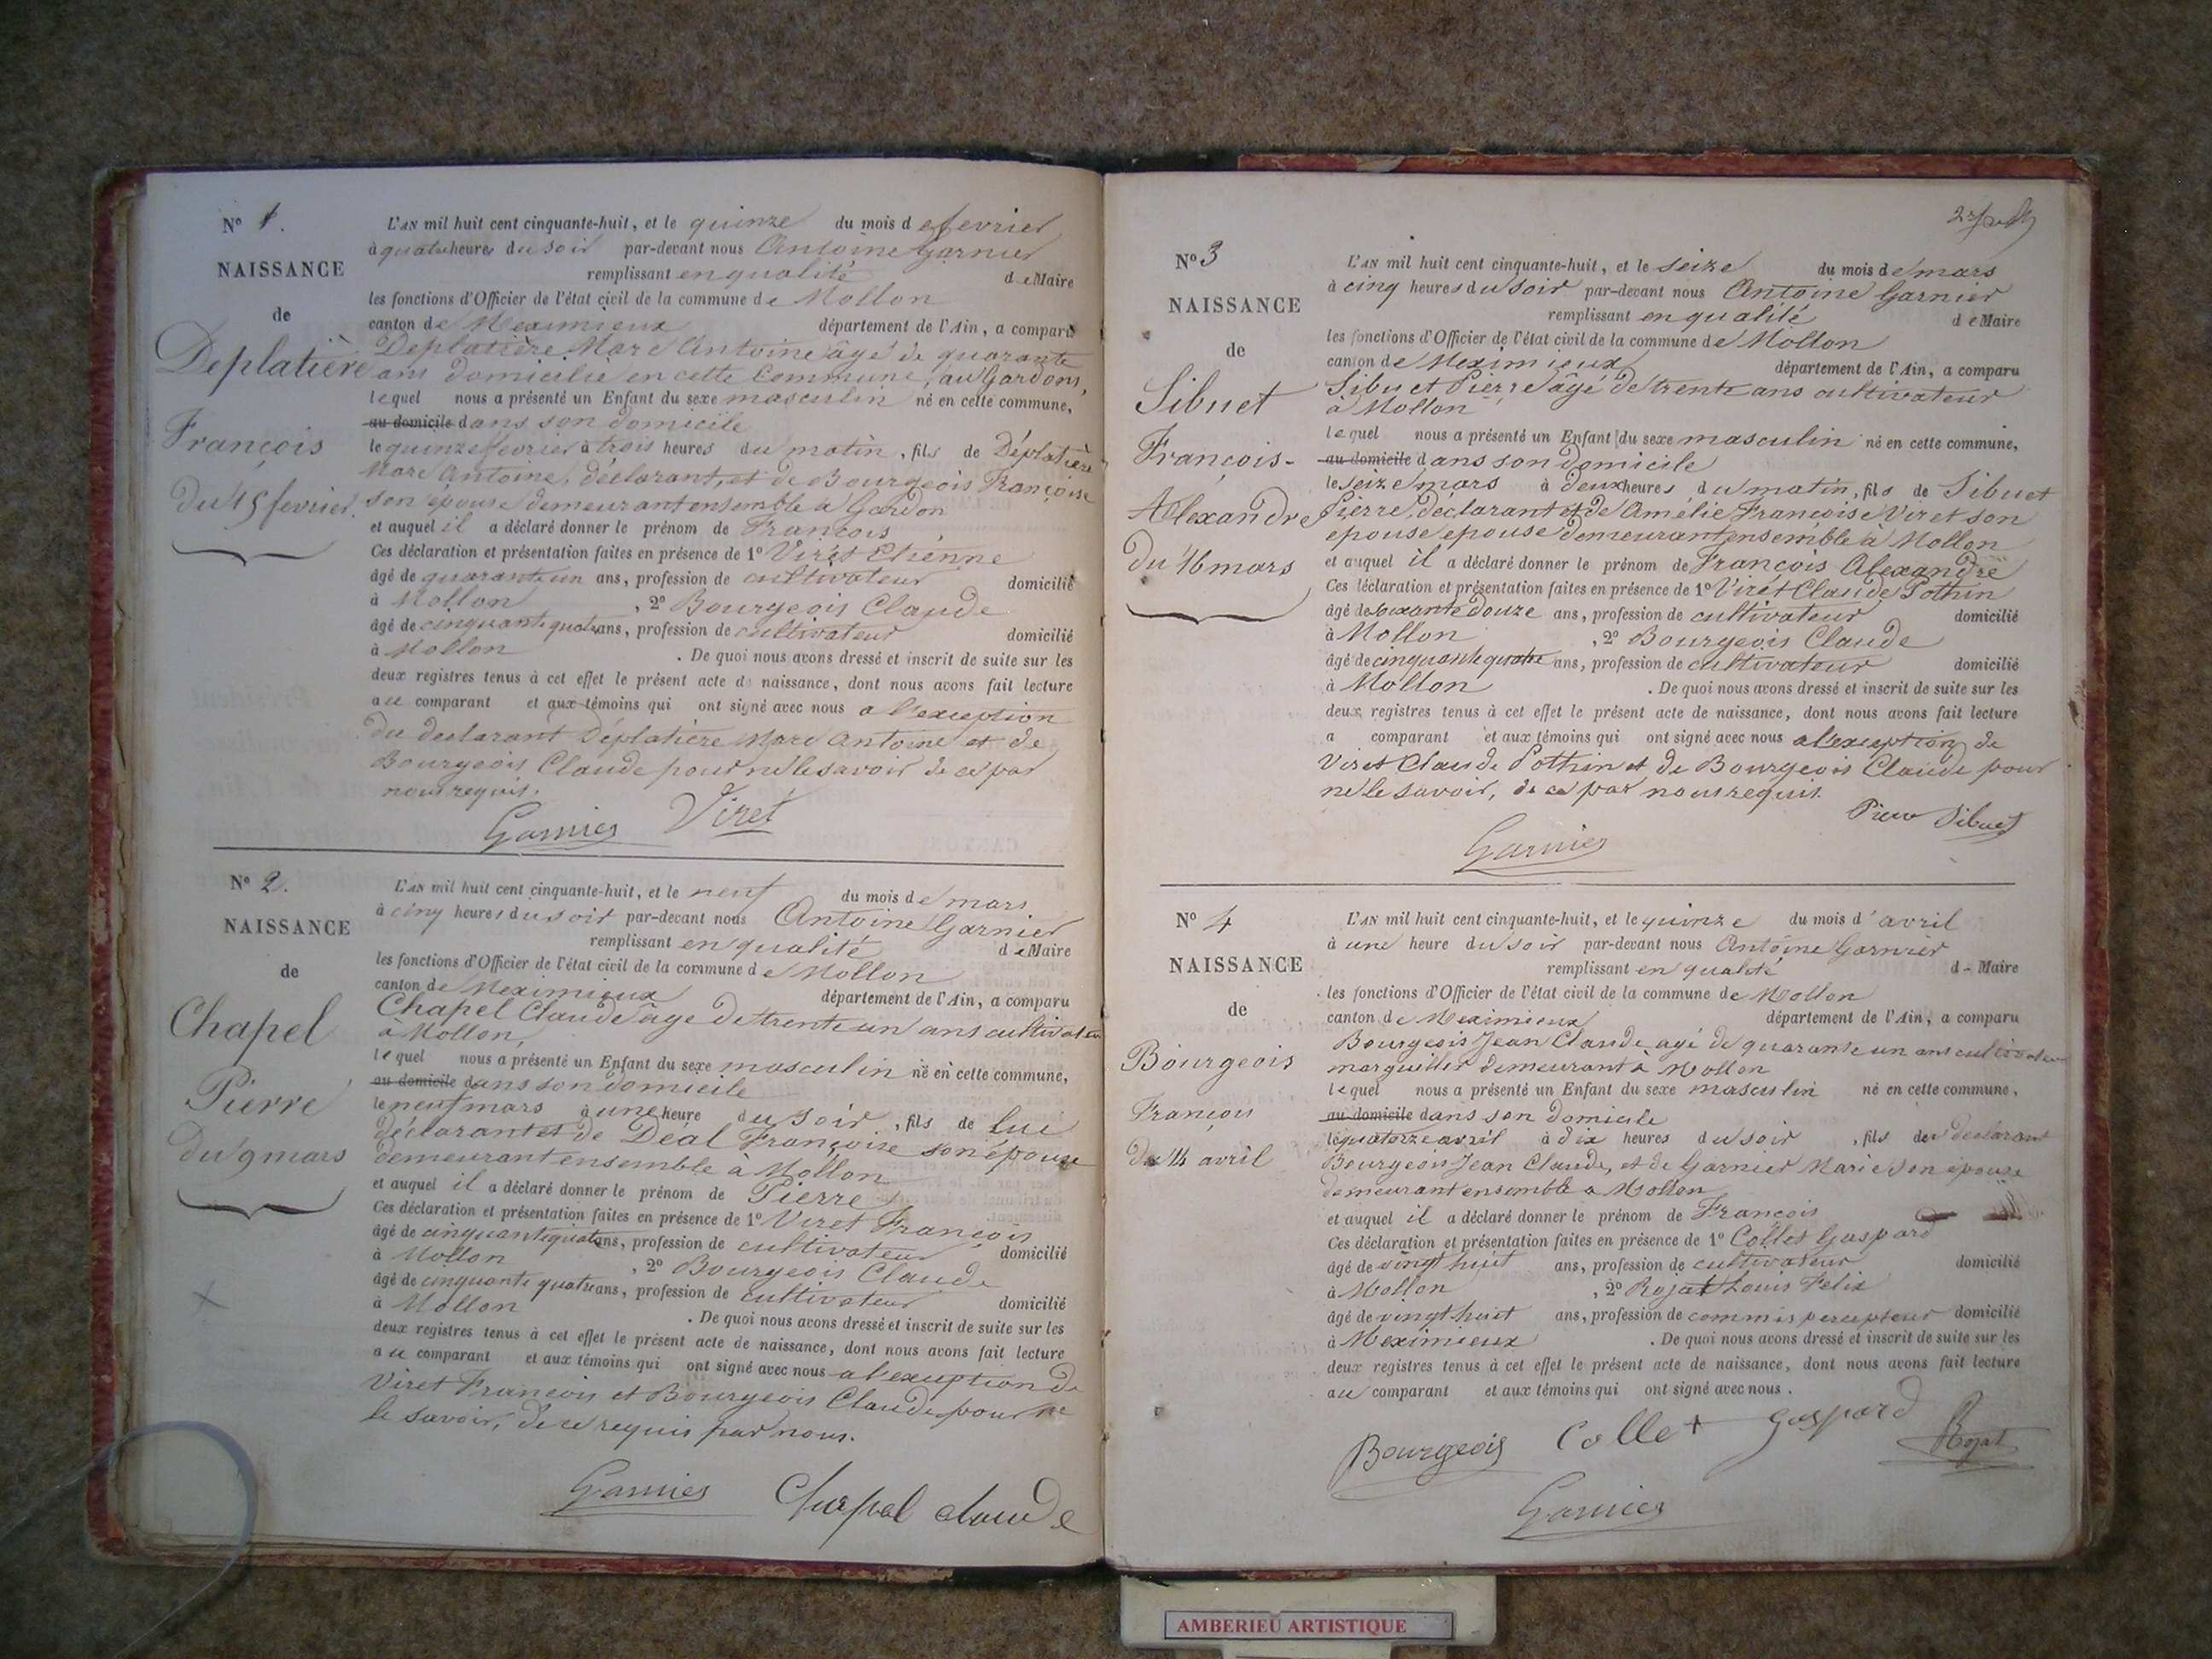 No 1.
NAISSANCE
de
Deplatière
François
du 15 fevrier.
L'AN mil huit cent cinquante-huit, et le quinze du mois de fevrier
à quatre heures du soir par-devant nous Antoine Garnier
remplissant en qualité de Maire
les fonctions d'Officier de l'état civil de la commune de Mollon
canton de Meximieux département de l'Ain, a comparu
Deplatière Marc Antoine âgé de quarante
ans domicilié en cette Commune, au Gardons,
lequel nous a présenté un Enfant du sexe masculin né en cette commune,
au domicile dans son domicile
le quinze fevrier à trois heures du matin, fils de Déplatière
Marc Antoine, déclarant, et de Bourgeois Françoise
son épouse demeurant ensemble à Gardon
et auquel il a déclaré donner le prénom de François
Ces déclaration et présentation faites en présence de 1o Viret Etienne
âgé de quarante un ans, profession de cultivateur domicilié
à Mollon, 2o Bourgeois Claude
âgé de cinquante quatre ans, profession de cultivateur domicilié
à Mollon. De quoi nous avons dressé et inscrit de suite sur les
deux registres tenus à cet effet le présent acte de naissance, dont nous avons fait lecture
au comparant et aux témoins qui ont signé avec nous a l'exception
du déclarant Déplatière Marc Antoine et de
Bourgeois Claude pour ne le savoir de ce par
nous requis.
Garnier Viret
No 2.
NAISSANCE
de
Chapel
Pierre
du 9 mars
L'AN mil huit cent cinquante-huit, et le neuf du mois de mars
à cinq heures du soir par-devant nous Antoine Garnier
remplissant en qualité de Maire
les fonctions d'Officier de l'état civil de la commune de Mollon
canton de Meximieux département de l'Ain, a comparu
Chapel Claude âgé de trente un ans cultivateur
à Mollon,
lequel nous a présenté un Enfant du sexe masculin né en cette commune,
au domicile dans son domicile
le neuf mars à une heure du soir, fils de lui
déclarant et de Déal Françoise son épouse
demeurant ensemble à Mollon
et auquel il a déclaré donner le prénom de Pierre
Ces déclaration et présentation faites en présence de 1o Viret François
âgé de cinquante quatre ans, profession de cultivateur domicilié
à Mollon, 2o Bourgeois Claude
âgé de cinquante quatre ans, profession de cultivateur domicilié
à Mollon. De quoi nous avons dressé et inscrit de suite sur les
deux registres tenus à cet effet le présent acte de naissance, dont nous avons fait lecture
au comparant et aux témoins qui ont signé avec nous a l'exception de
Viret François et Bourgeois Claude pour ne
le savoir, de ce requis par nous.
Garnier Chapel claude
No 3
NAISSANCE
de
Sibuet
François-
Alexandre
du 16 mars
L'AN mil huit cent cinquante-huit, et le seize du mois de mars
à cinq heures du soir par-devant nous Antoine Garnier
remplissant en qualité de Maire
les fonctions d'Officier de l'état civil de la commune de Mollon
canton de Meximieux département de l'Ain, a comparu
Sibuet Pierre âgé de trente ans cultivateur
à Mollon
lequel nous a présenté un Enfant du sexe masculin né en cette commune,
au domicile dans son domicile
le seize mars à deux heures du matin, fils de Sibuet
Pierre, déclarant et de Amélie Françoise Viret son
epouse epouse demeurant ensemble à Mollon
et auquel il a déclaré donner le prénom de François Alexandre
Ces déclaration et présentation faites en présence de 1o Viret Claude Pothin
âgé de soixante douze ans, profession de cultivateur domicilié
à Mollon, 2o Bourgeois Claude
âgé de cinquante quatre ans, profession de cultivateur domicilié
à Mollon. De quoi nous avons dressé et inscrit de suite sur les
deux registres tenus à cet effet le présent acte de naissance, dont nous avons fait lecture
a comparant et aux témoins qui ont signé avec nous a l'exception de
Viret Claude Pothin et de Bourgeois Claude pour
ne le savoir, de ce par nous requis.
Pierre Sibuet
Garnier
No 4
NAISSANCE
de
Bourgeois
François
du 14 avril
L'AN mil huit cent cinquante-huit, et le quinze du mois d'avril
à une heure du soir par-devant nous Antoine Garnier
remplissant en qualité d- Maire
les fonctions d'Officier de l'état civil de la commune de Mollon
canton de Meximieux département de l'Ain, a comparu
Bourgeois Jean Claude, agé de quarante un ans cultivateur
marguillier demeurant à Mollon
lequel nous a présenté un Enfant du sexe masculin né en cette commune,
au domicile dans son domicile
le quatorze avril à dix heures du soir, fils du déclarant
Bourgeois Jean Claude, et de Garnier Marie son épouse
demeurant ensemble a Mollon
et auquel il a déclaré donner le prénom de François
Ces déclaration et présentation faites en présence de 1o Collet Gaspard
âgé de vingt huit ans, profession de cultivateur domicilié
à Mollon, 2o Rojat Louis Felix
âgé de vingt huit ans, profession de commis percepteur domicilié
à Meximieux. De quoi nous avons dressé et inscrit de suite sur les
deux registres tenus à cet effet le présent acte de naissance, dont nous avons fait lecture
au comparant et aux témoins qui ont signé avec nous.
Bourgeois Collet gaspard Rojat
Garnier
AMBERIEU ARTISTIQUE